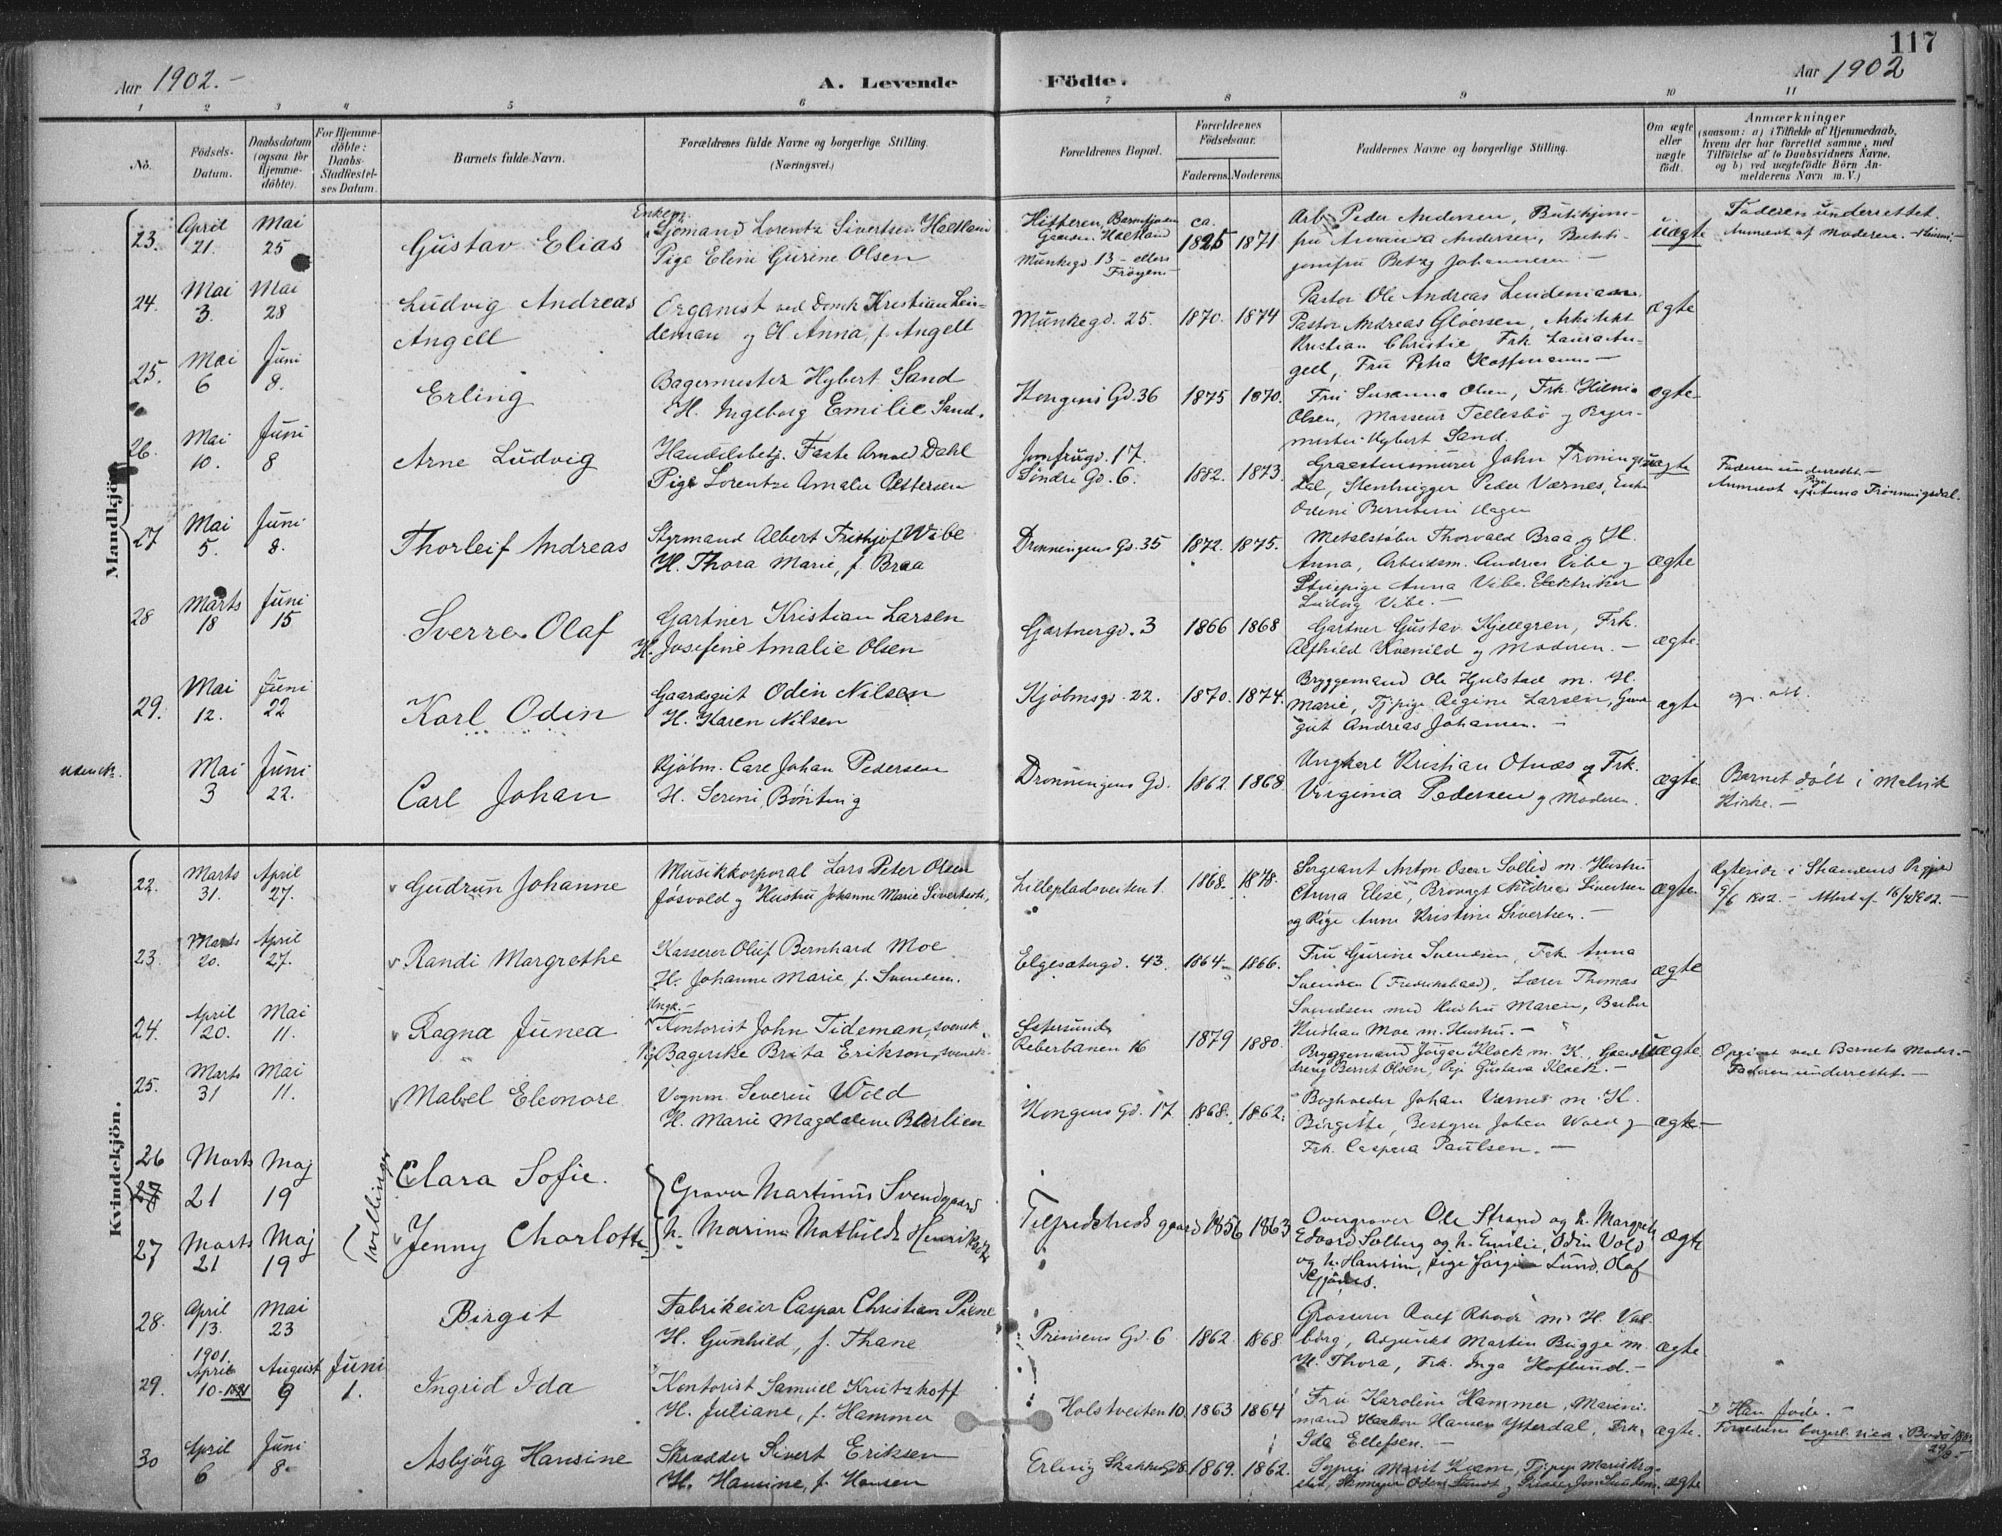 117
Aar 1902.-
A. Levende Födte.
Aar 1902
1 2 3 4 5 6 7 8 9 10 11
No.
Födsels-Datum.
Daabsdatum (ogsaa for Hjemme-döbte).
For Hjemme-döbte: Daabs-Stadfæstel-ses Datum.
Barnets fulde Navn.
Forældrenes fulde Navne og borgerlige Stilling. (Næringsvei.)
Forældrenes Bopæl.
Forældrenes Födselsaar.
Faderens. Moderens.
Faddernes Navne og borgerlige Stilling.
Om ægte eller uægte födt.
Anmærkninger
(saasom: a) i Tilfælde af Hjemmedaab,
hvem der har forrettet samme, med
Tilföielse af to Daabsvidners Navne,
og b) ved uægtefödte Börn An-
melderens Navn m. V.)
Mandkjön.
23. April 21. Mai 25 Gustav Elias
Enkem. Sjömand Lorentz Sivertsen
Pige Eleni Gurine Olsen
Hitteren,
Munkegd 13 - ellers Fröyen
ca. 1825 1871
Arb. Peder Andersen,
Amanda Andersen,
Betzy Johannesen
uægte
Faderen underrettet.
Anmeldt af Moderen.
24. Mai 3. Mai 28 Ludvig Andreas Angell
Organist ved Domk Kristian Lin-
deman og H. Anna, f. Angell
Munkegd. 25. 1870. 1874
Pastor Ole Andreas Lindeman
Pastor Andreas Gløersen, Arkitekt
Kristian Christie, Frk. Laura An-
gell, Fru Petra Hoffmann. -
ægte
25. Mai 6 Juni 8. Erling
Bagermester Hybert Sand
H. Ingeborg Emilie Sand.
Kongens Gd. 36 1875 1870.
Fru Susanna Olsen, Frk. Hilma
Olsen, Masseur Tellesbö og Bager-
mester Hybert Sand.
ægte
26. Mai 10. Juni 8 Arne Ludvig
Handelsbetj. Faste Arnold Dahl
Pige Lorentze Amalie Pettersen
Jomfrugd. 17.
Söndre Gd. 6. 1882. 1873.
John Trönningsdal,
Stenhugger Peder Værnes,
uægte
Faderen underrettet -
Anmeldt af Pige Anna Trönningsdal.
27 Mai 5. Juni 8. Thorleif Andreas
Styrmand Albert Frithjof Wibe
H. Thora Marie, f. Braa
Dronningens Gd. 35 1872. 1875.
Metalstöber Thorvald Braa og H.
Anna, Arbeidsm. Andreas Vibe og
Anna Vibe. Elektriker
Ludvig Vibe. -
ægte
28 Marts 18 Juni 15 Sverre Olaf
Gartner Kristian Larsen
H. Josefine Amalie Olsen
Gartnergd. 3 1866 1868
Gartner Gustav Kjellgren, Frk.
Alfhild Kvenild og Moderen. -
ægte.
29. Mai 12. Juni 22 Karl Odin
Gaardsgut Odin Nilsen
H. Karen Nilsen
Kjöbmsgd. 22. 1870. 1874.
Bryggemand Ole Hjulstad m. H.
Marie, Tj.pige Regine Larsen, Gaards-
gut Andreas Johansen. -
ægte
Mai 3 Juni 22. Carl Johan
Kjöbm. Carl Johan Pedersen
H. Sereni Böntwig
Dronningens Gd. 1862. 1868
Ungkarl Kristian Otnæs og Frk.
Virginia Pedersen og Moderen.
ægte
Barnet döbt i Malvik
Kirke. -
Kvindekjön.
22. Marts 31. April 27. Gudrun Johanne
Musikkorporal Lars Peter Olsen
Jösvold og Hustru Johanne Marie Sivertsen,
Lillepladsveiten 1. 1868. 1878.
Sergeant Anton Oscar Sollid m. Hustru
Anna Elise, Andreas Sivertsen
og Pige Anne Kristine Sivertsen. -
ægte
9/6 1902. - Attest af 16/4 1902. -
23. Marts 20. April 27. Randi Margrethe
Kasserer Oluf Bernhard Moe
H. Johanne Marie, f. Svendsen.
Elgesætergd. 43. 1864 - 1866.
Fru Gurine Svendsen, Frk. Anna
Svendsen (Fredrikstad), Lærer Thomas
Svendsen med Hustru Maren, Barber
Kristian Moe m. Hustru. -
ægte
24. April 20. Mai 11. Ragna Junea
Ungk. - Kontorist John Tideman, svensk
Pg. Bagerske Brita Erikson, svensk.
Östersund
Reberbanen 16 1879 1880.
Bryggemand Jörgen Klock m. H., Gaards-
dreng Bernt Olsen, Pige Gustava Klock. -
uægte
Opgivet ved Barnets Moder. -
Faderen underrettet. -
25. Marts 31 Mai 11. Mabel Eleonore
Vognm. Severin Wold
H. Marie Magdalene Barlien
Kongens Gd. 17 1868. 1862.
Bogholder Johan Værnes m. H.
Birgitte, Bestyrer Johan Wold og
Frk. Caspera Paulsen. -
ægte -
26 Marts 21 Maj 19 Clara Sofie.
27 Marts 21 Maj 19 Jenny Charlotte
tvillinger
Graver Martinus Svendgaard
h. Marina Mathilde Henriksen
Tilfredshedsgaard 1856 1863
Overgraver Ole Strand og h. Margrete,
Edvard Solberg og h. Emilie, Odin Vold
og h. Hansine, pige Jörgine Lund, Olaf
ægte
28. April 13. Mai 23 Birgit
Fabrikeier Caspar Christian Piene
H. Gunhild, f. Thane
Prinsens Gd. 6 1862. 1868.
Grosserer Rolf Rhode m. H. Val-
borg, Adjunkt Martin Bugge m.
H. Thora, Frk. Inga Hoflund. -
ægte
29. 1901. April 10 - 1901 August 9 Juni 1. Ingrid Ida
Kontorist Samuel Krutzkoff
H. Juliane, f. Hammer
Holstveiten 10. 1863 1864
Fru Karoline Hammer,
Haakon Hansen Ysterdal, Frk.
Ida Ellefsen. -
ægte.
Han Jöde. -
Forældrene borgerl. viet i Bodö
30 April 6 Juni 8. Asbjörg Hansine
Skrædder Sivert Eriksen
H. Hansine, f. Hansen
Erling Skakkes Gd 8. 1869. 1862.
Marit Kvam,
ægte